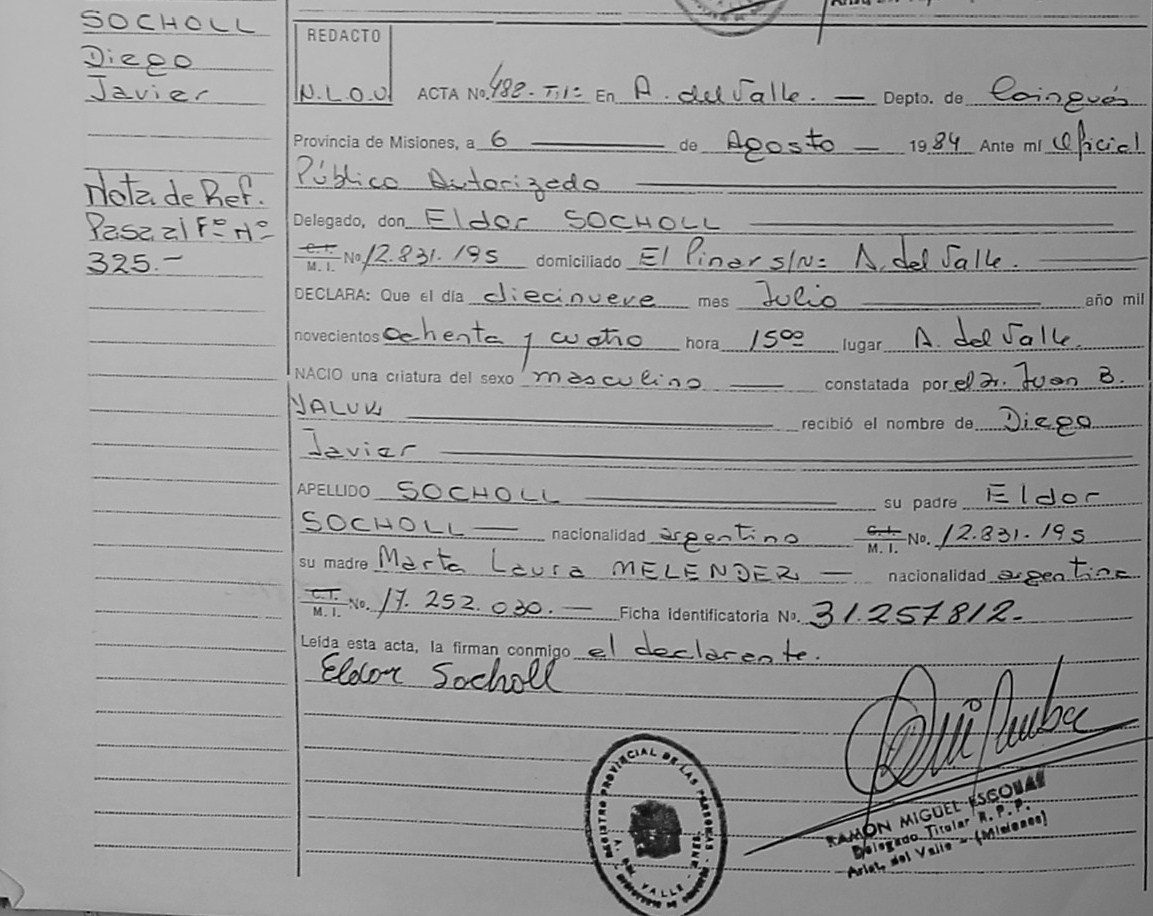 SOCHOLL
Diego
Javier
Nota de Ref.
Pasa al Fº Nº
325.-
REDACTO
N.L.O.U.
ACTA No. 488-T,1º En A. del Valle. — Depto. de Cainguás
Provincia de Misiones, a 6 — de Agosto — 1984 Ante mí Oficial
Público Autorizado
Delegado, don Eldor SOCHOLL
C.I. M.I. No 12.831.195 domiciliado El Pinar s/Nº A. del Valle.
DECLARA: Que el día diecinueve mes Julio año mil
novecientos ochenta y cuatro hora 15ºº lugar A. del Valle.
NACIO una criatura del sexo masculino — constatada por el Dr. Juan B.
YALUK — recibió el nombre de Diego
Javier
APELLIDO SOCHOLL — su padre Eldor
SOCHOLL — nacionalidad argentino C.I. M.I. No. 12.831.195
su madre Marta Laura MELENDER — nacionalidad argentina
C.I. M.I. No. 17.252.030.— Ficha identificatoria No. 31.257.812-
Leída esta acta, la firman conmigo el declarante.
Eldor Socholl
REGISTRO PROVINCIAL DE LAS PERSONAS
A. DEL VALLE
RAMON MIGUEL ESCOBAR
Delegado Titular R.P.P.
Arist. del Valle - (Misiones)